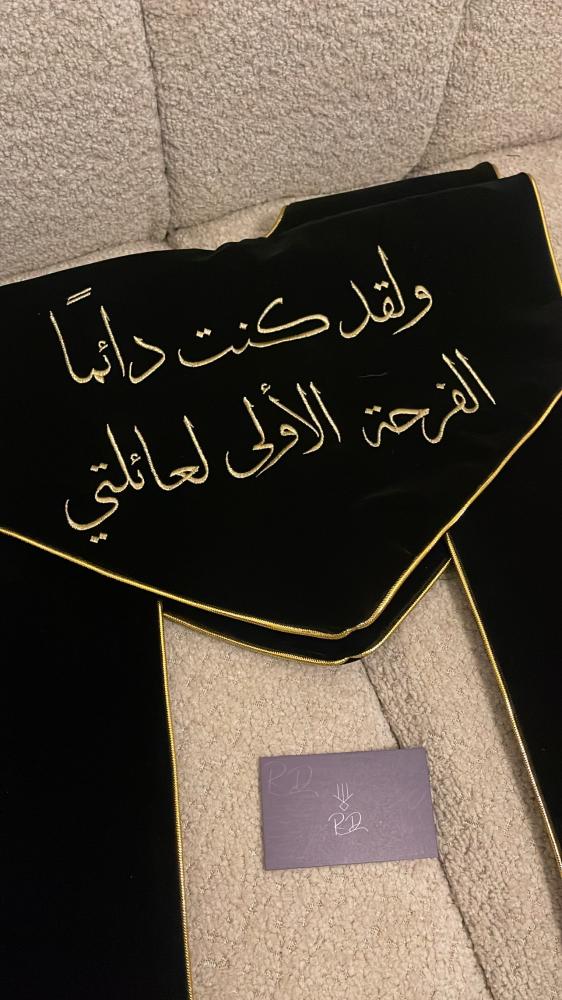 ولقد كنت دائمًا
الفرحة الأولى لعائلتي
RD
RD